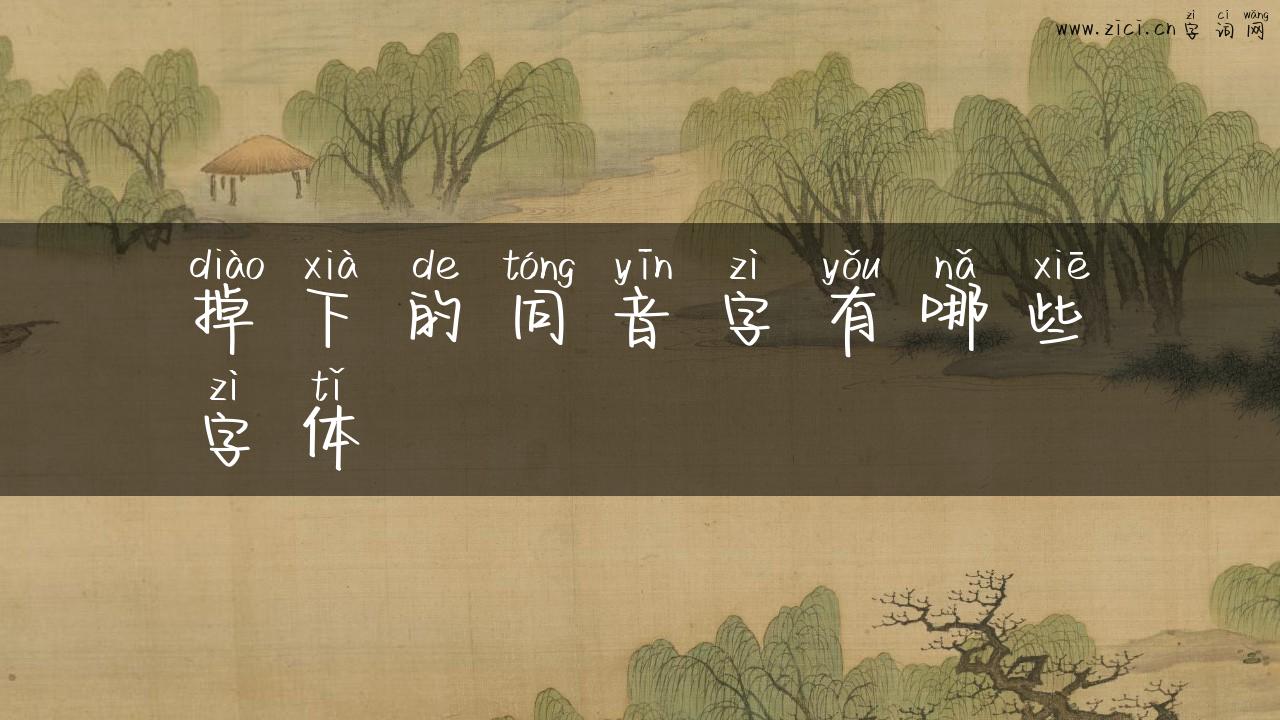 zì cí wǎng
www.zici.cn 字 词 网
diào xià de tóng yīn zì yǒu nǎ xiē
掉 下 的 同 音 字 有 哪 些
zì tǐ
字 体